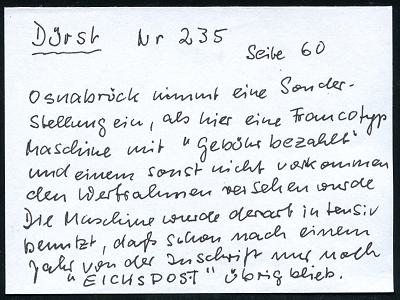 Dürst Nr 235
Seite 60
Osnabrück nimmt eine Sonder-
stellung ein, als hier eine Francotyp
Maschine mit "Gebühr bezahlt"
und einem sonst nicht vorkommen
den Wertrahmen versehen wurde
Die Maschine wurde derart intensiv
benutzt, daß schon nach einem
Jahr von der Inschrift nur noch
"EICHSPOST" übrig blieb.